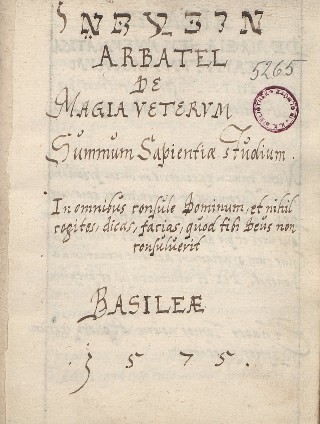 ARBATEL
5265
DE
MAGIA VETERVM
Summum Sapientiæ Studium.
In omnibus consule Dominum, et nihil
cogites, dicas, facias, quod tibi Deus non
consuluerit
BASILEÆ
1575.